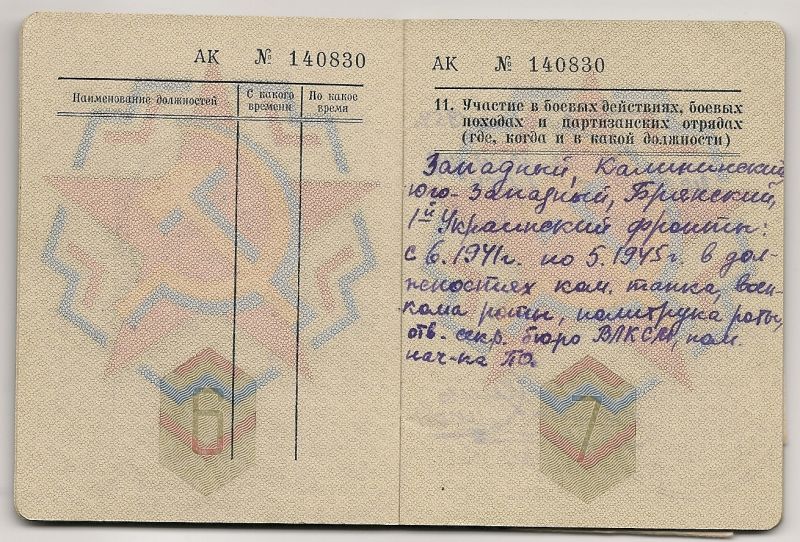 АК № 140830
Наименование должностей
С какого времени
По какое время
6
АК № 140830
11. Участие в боевых действиях, боевых
походах и партизанских отрядах
(где, когда и в какой должности)
Западный, Калининский
Юго-Западный, Брянский,
1й Украинский фронты:
с 6.1941г. по 5.1945г. в дол-
жностях ком. танка, воен-
кома роты, политрука роты,
отв. секр. бюро ВЛКСМ, пом.
нач-ка ПО.
7